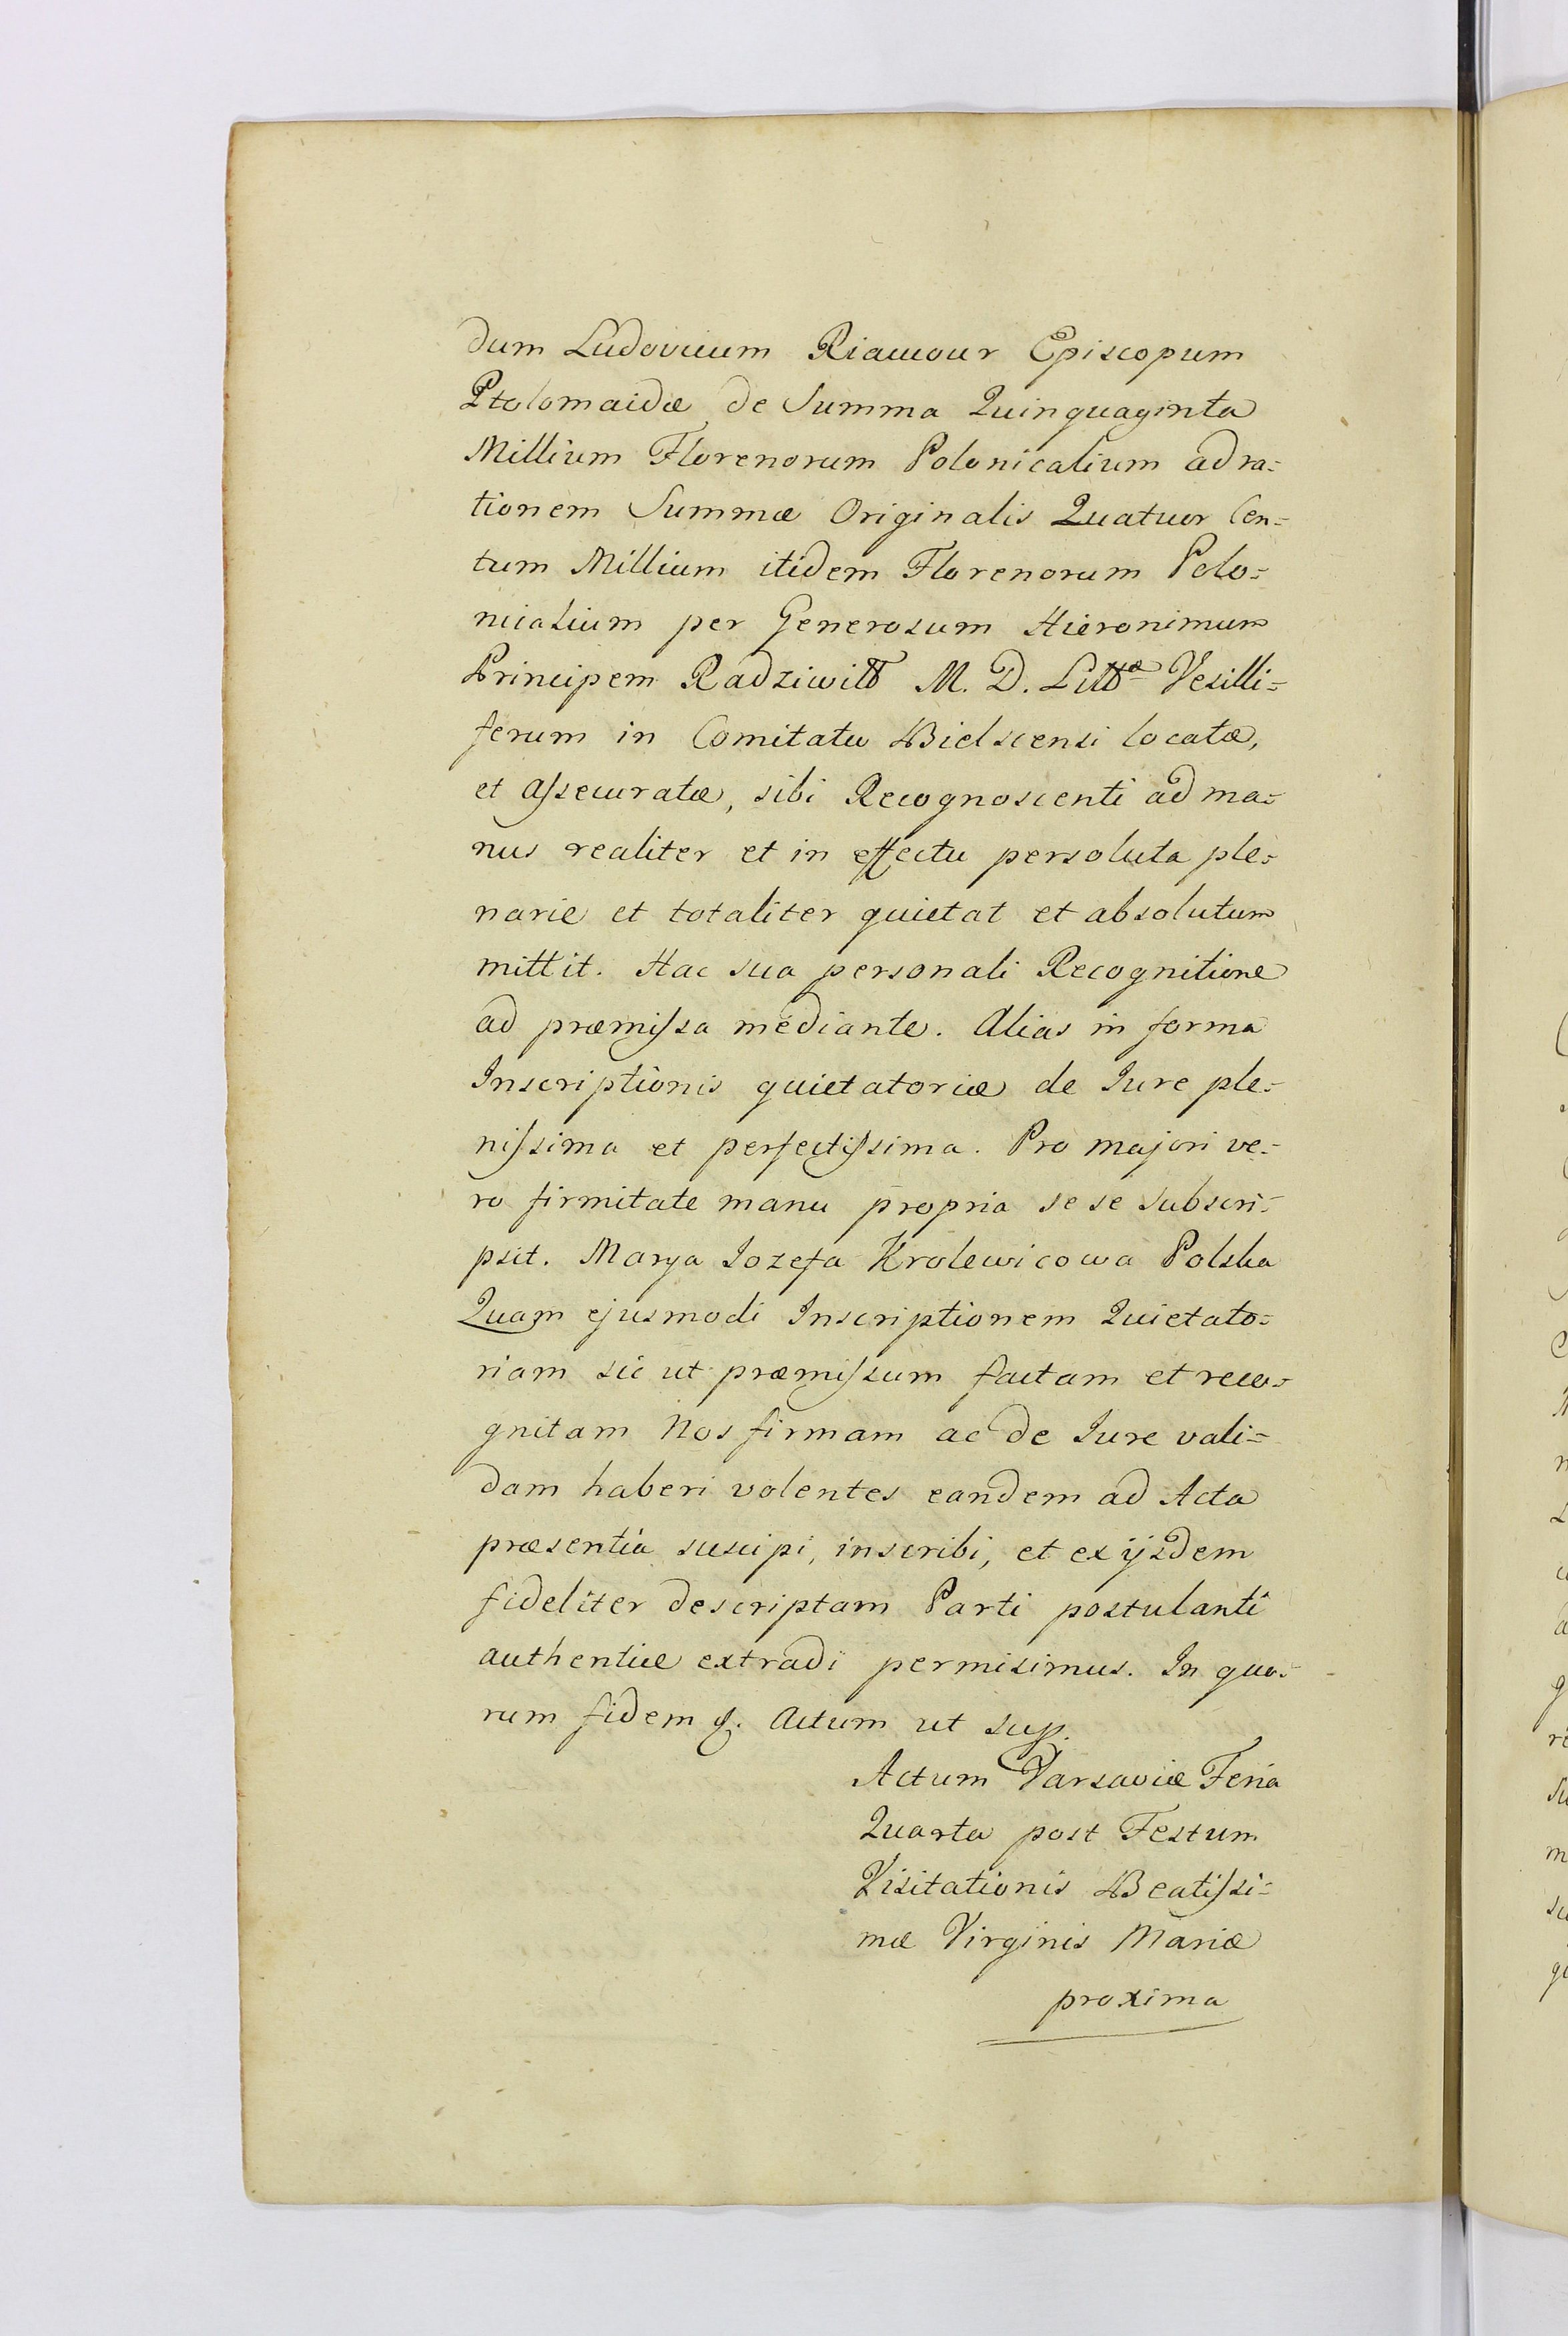 dum Ludovicum Riaucour Episcopum
Ptolomaidæ de Summa Quinquaginta
Millium Florenorum Polonicalium ad ra=
tionem Summæ Originalis Quatuor Cen=
tum Millium itidem Florenorum Polo=
nicalium per Generosum Hieronimum
Principem Radziwiłł M. D. Littæ Vexilli=
ferum in Comitatu Bielscensi locatæ,
et assecuratæ, sibi Recognoscenti ad ma=
nus realiter et in effectu persoluta ple=
narie et totaliter quietat et absolutum
mittit. Hac sua personali Recognitione
ad præmissa mediante. Alias in forma
Inscriptionis quietatoriæ de Iure ple=
nissima et perfectissima. Pro majori ve=
ro firmitate manu propria se se subscri=
psit. Marya Iozefa Krolewicowa Polska
Quam ejusmodi Inscriptionem Quietato=
riam sic ut præmissum factam et reco=
gnitam Nos firmam ac de Iure vali=
dam haberi volentes eandem ad Acta
præsentia suscipi, inscribi, et ex ijsdem
fideliter descriptam Parti postulanti
authentice extradi permisimus. In quo=
rum fidem &. Actum ut sup.
Actum Varsaviæ Feria
Quarta post Festum
Visitationis Beatissi=
mæ Virginis Mariæ
proxima